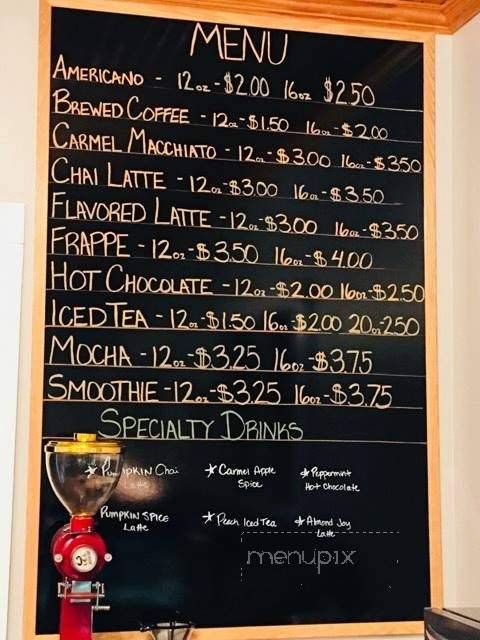 MENU
AMERICANO - 12oz - $2.00 16oz $2.50
BREWED COFFEE - 12oz - $1.50 16oz - $2.00
CARMEL MACCHIATO - 12oz - $3.00 16oz - $3.50
CHAI LATTE - 12oz - $3.00 16oz - $3.50
FLAVORED LATTE - 12oz - $3.00 16oz - $3.50
FRAPPE - 12oz - $3.50 16oz - $4.00
HOT CHOCOLATE - 12oz - $2.00 16oz - $2.50
ICED TEA - 12oz - $1.50 16oz $2.00 20oz - 2.50
MOCHA - 12oz - $3.25 16oz - $3.75
SMOOTHIE - 12oz - $3.25 16oz - $3.75
SPECIALTY DRINKS
PUMPKIN Chai
Latte
Carmel Apple
Spice
Peppermint
Hot Chocolate
PUMPKIN SPICE
Latte
Peach Iced Tea
Almond Joy
Latte
menupix